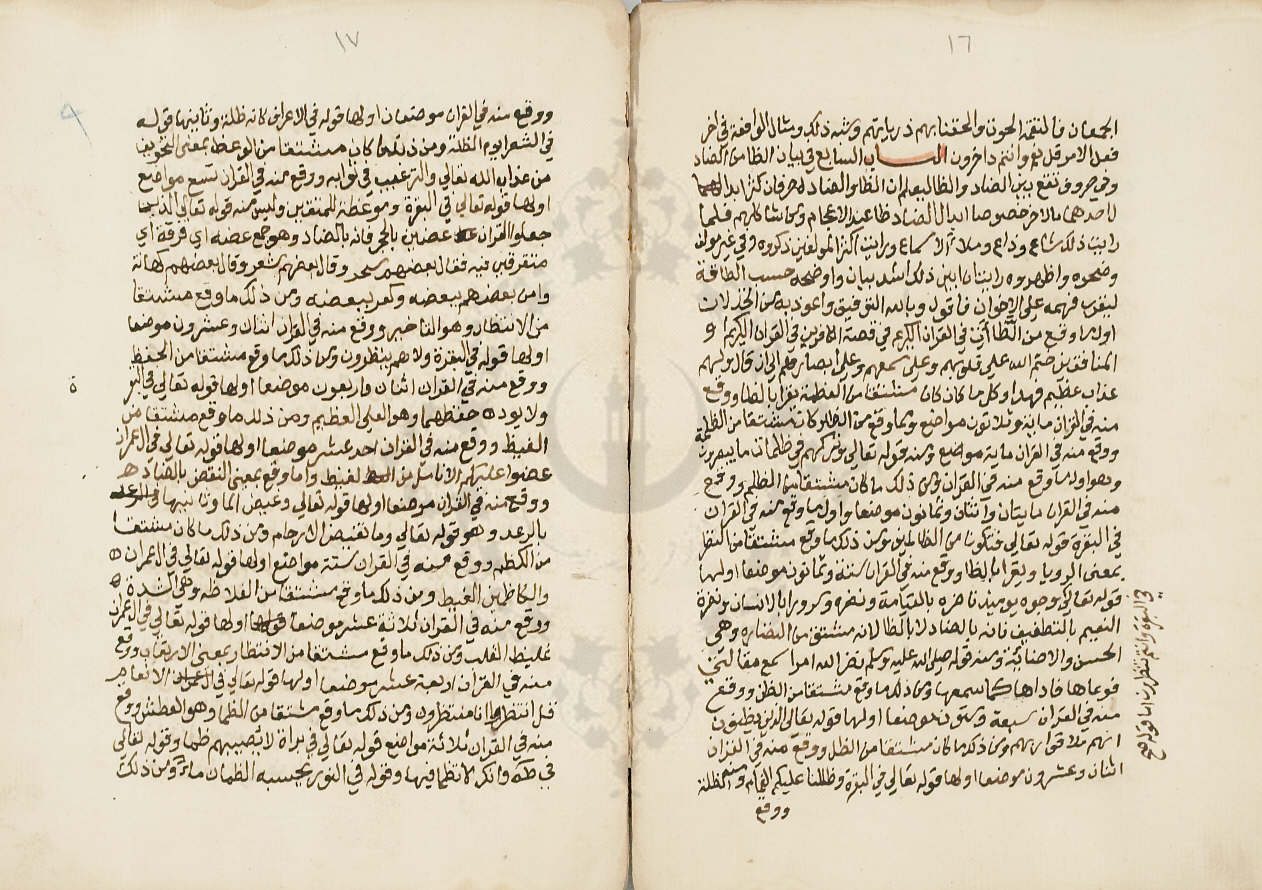 ١٦
الجمعان فالتقمه الحوت والحقنا بهم ذرياتهم وشبه ذلك ومثال الواقعة في اخر
فعل الامر قل نعم وانتم داخرون الباب السابع في بيان الظا من الضاد
وفي حروف تقع بين الضاد والظا ليعلم ان الظا والضاد حرفان كثر ابدال
احدهما بالاخر خصوصا ابدال الضاد ظا عند الاعجام ومن شاكلهم فلما
رايت ذلك شاع وذاع وملا الاسماع ورايت اكثر المولفين ذكروه وفي غير مولف
وضحوه واظهروه رايت ان ابين ذلك اشد بيان واوضحه حسب الطاقة
ليقرب فهمه على الاخوان فاقول وبالله التوفيق واعوذ به من الخذلان
اول ما وقع من الظاآت في القران الكريم في قصة الكافرين في القران الكريم او
المنافقين ختم الله على قلوبهم وعلى سمعهم وعلى ابصارهم الى ان قال ولهم
عذاب عظيم فهذا وكل ما كان مشتقا من العظمة يقرا بالظا ووقع
منه في القران ماية وثلاثون مواضع ومما وقع من الظا ما كان مشتقا من الظلمة
ووقع منه في القران ماية مواضع ومنه قوله تعالى وتركهم في ظلمات لا يبصرون
وهو اول ما وقع منه في القران ومن ذلك ما كان مشتقا من الظلم ووقع
منه في القران مايتان واثنان وثمانون موضعا واول ما وقع منه في القران
في البقرة قوله تعالى فتكونا من الظالمين ومن ذلك ما وقع مشتقا من النظر
بمعنى الرويا ويقرا بالظا ووقع منه في القران ستة وثمانون موضعا اولها
قوله تعالى وجوه يوميذ ناضرة بالقيامة ونضرة وسرورا بالانسان ونضرة
النعيم بالتطفيف فانه بالضاد لا بالظا لانه مشتق من النضارة وهي
الحسن والاضائة ومنه قوله صلى الله عليه وسلم نضر الله امرا سمع مقالتي
فوعاها فاداها كما سمعها ومن ذلك ما وقع مشتقا من الظن ووقع
منه في القران سبعة وستون موضعا اولها قوله تعالى الذين يظنون
انهم ملاقوا ربهم ومن ذلك ما كان مشتقا من الظل ووقع منه في القران
اثنان وعشرون موضعا اولها قوله تعالى في البقرة وظللنا عليكم الغمام ومنه الظلة
ووقع
في البقرة وانتم تنظرون اما قوله الخ
١٧
ووقع منه في القران موضعان اولها قوله في الاعراف كانه ظلة وثانيها قوله
في الشعرا يوم الظلة ومن ذلك ما كان مشتقا من الوعظ بمعنى التخويف
من عذاب الله تعالى والترغيب في ثوابه ووقع منه في القران تسع مواضع
اولها قوله تعالى في البقرة وموعظة للمتقين وليس منه قوله تعالى الذين
جعلوا القران عضين بالحجر فانه بالضاد وهو جمع عضه اي فرقة اي
متفرقين فيه فقال بعضهم سحر وقال بعضهم شعر وقال بعضهم كهانة
وامن بعضهم ببعضه وكفر ببعضه ومن ذلك ما وقع مشتقا
من الانتظار وهو التاخير ووقع منه في القران اثنان وعشرون موضعا
اولها قوله في البقرة ولا هم ينظرون ومن ذلك ما وقع مشتقا من الحفظ
ووقع منه في القران اثنان واربعون موضعا اولها قوله تعالى في البقرة
ولا يوده حفظهما وهو العلي العظيم ومن ذلك ما وقع مشتقا من
الغيظ ووقع منه في القران احد عشر موضعا اولها قوله تعالى في ال عمران
عضوا عليكم الانامل من الغيظ واما وقع بمعنى النقص بالضاد
ووقع منه في القران موضعا اولها قوله تعالى وغيض الما وثانيها في
بالرعد وهو قوله تعالى وما تغيض الارحام ومن ذلك ما كان مشتقا
من الكظم ووقع منه في القران ستة مواضع اولها قوله تعالى في ال عمران
والكاظمين الغيظ ومن ذلك ما وقع مشتقا من الغلاظه وهي الشدة
ووقع منه في القران ثلاثة عشر موضعا اولها قوله تعالى في ال عمران
غليظ القلب ومن ذلك ما وقع مشتقا من الانتظار بمعنى الارتقاب ووقع
منه في القران اربعة عشر موضعا اولها قوله تعالى في الانعام
قل انتظروا انا منتظرون ومن ذلك ما وقع مشتقا من الظما وهو العطش ووقع
منه في القران ثلاثة مواضع قوله تعالى في براة لا يصيبهم ظما وقوله تعالى
في طه وانك لا تظما فيها وقوله في النور يحسبه الظمان ماء ومن ذلك